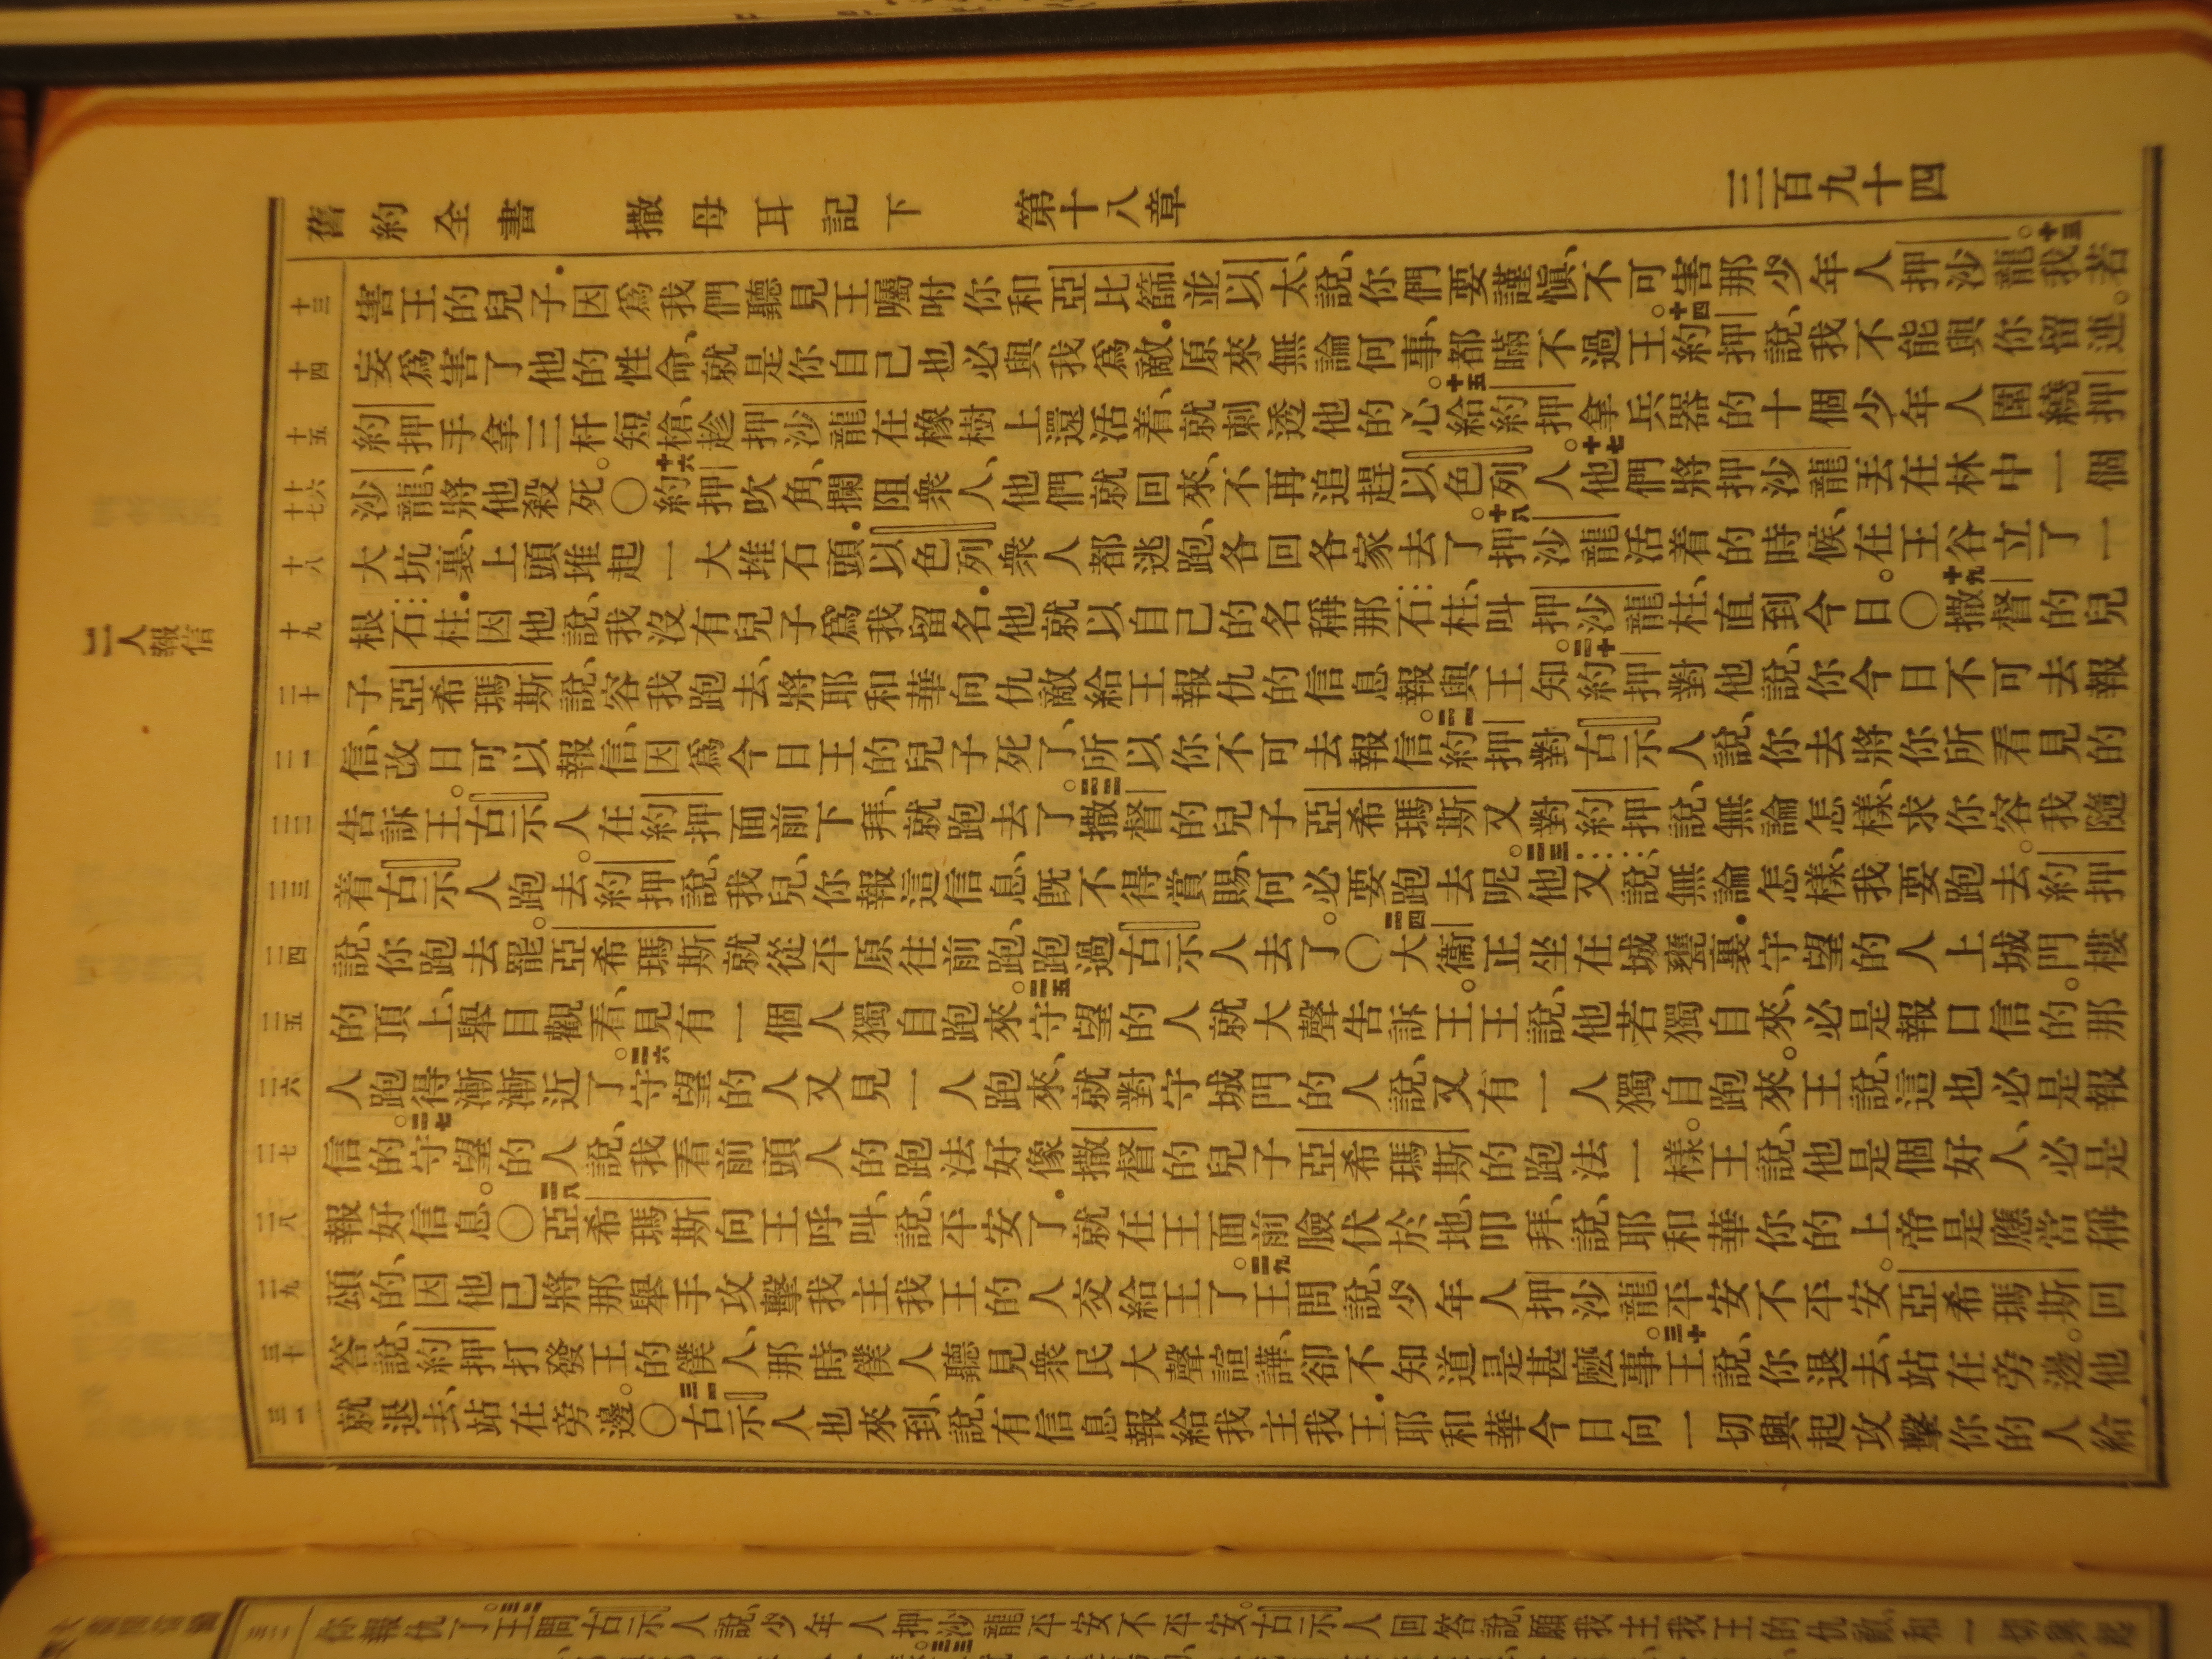 舊約全書 撒母耳記下 第十八章 三百九十四
二人報信
十三 害王的兒子．因爲我們聽見王囑咐你和亞比篩並以太說、你們要謹愼、不可害那少年人押沙龍。十三我若
十四 妄爲害了他的性命、就是你自己也必與我爲敵．原來無論何事、都瞞不過王。十四約押說、我不能與你留連。
十五 約押手拿三杆短槍、趁押沙龍在橡樹上還活着、就刺透他的心。十五給約押拿兵器的十個少年人圍繞押
十六 十七 沙龍、將他殺死。〇十六約押吹角、攔阻衆人、他們就回來、不再追趕以色列人。十七他們將押沙龍丟在林中一個
十八 大坑裏、上頭堆起一大堆石頭．以色列衆人都逃跑、各回各家去了。十八押沙龍活着的時候、在王谷立了一
十九 根石柱．因他說、我沒有兒子爲我留名．他就以自己的名稱那石柱、叫押沙龍柱、直到今日。〇十九撒督的兒
二十 子亞希瑪斯說、容我跑去、將耶和華向仇敵給王報仇的信息報與王知。二十約押對他說、你今日不可去報
二一 信、改日可以報信、因爲今日王的兒子死了、所以你不可去報信。二一約押對古示人說、你去將你所看見的
二二 告訴王。古示人在約押面前下拜、就跑去了。二二撒督的兒子亞希瑪斯又對約押說、無論怎樣、求你容我隨
二三 着古示人跑去。約押說、我兒、你報這信息、旣不得賞賜、何必要跑去呢。二三他又說、無論怎樣、我要跑去。約押
二四 說、你跑去罷。亞希瑪斯就從平原往前跑、跑過古示人去了。〇二四大衞正坐在城甕裏．守望的人上城門樓
二五 的頂上、舉目觀看、見有一個人獨自跑來。二五守望的人就大聲告訴王。王說、他若獨自來、必是報口信的。那
二六 人跑得漸漸近了。二六守望的人又見一人跑來、就對守城門的人說、又有一人獨自跑來。王說、這也必是報
二七 信的。二七守望的人說、我看前頭人的跑法好像撒督的兒子亞希瑪斯的跑法一樣。王說、他是個好人、必是
二八 報好信息。〇二八亞希瑪斯向王呼叫、說、平安了．就在王面前臉伏於地叩拜、說、耶和華你的上帝是應當稱
二九 頌的、因他已將那舉手攻擊我主我王的人交給王了。二九王問說、少年人押沙龍平安不平安。亞希瑪斯回
三十 答說、約押打發王的僕人、那時僕人聽見衆民大聲諠譁、卻不知道是甚麼事。三十王說、你退去、站在旁邊。他
三一 就退去、站在旁邊。〇三一古示人也來到、說、有信息報給我主我王．耶和華今日向一切興起攻擊你的人給
三二 你報仇了。三二王問古示人說、少年人押沙龍平安不平安。古示人回答說、願我主我王的仇敵和一切興起